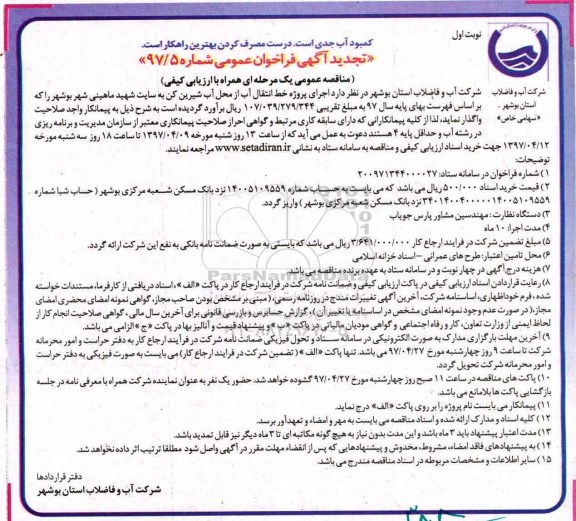 نوبت اول
کمبود آب جدی است. درست مصرف کردن بهترین راهکار است.
«تجدید آگهی فراخوان عمومی شماره ۹۷/۵»
(مناقصه عمومی یک مرحله ای همراه با ارزیابی کیفی)
شرکت آب و فاضلاب
استان بوشهر
«سهامی خاص»
شرکت آب و فاضلاب استان بوشهر در نظر دارد اجرای پروژه خط انتقال آب از محل آب شیرین کن به سایت شهید ماهینی شهر بوشهر را که
بر اساس فهرست بهای پایه سال ۹۷ به مبلغ تقریبی ۱۰۷/۰۳۹/۲۷۹/۳۴۴ ریال برآورد گردیده است به شرح ذیل به پیمانکار واجد صلاحیت
واگذار نماید، لذا از کلیه پیمانکارانی که دارای سابقه کاری مرتبط و گواهی احراز صلاحیت پیمانکاری معتبر از سازمان مدیریت و برنامه ریزی
در رشته آب و حداقل پایه ۴ هستند دعوت به عمل می آید که از ساعت ۱۳ روز شنبه مورخه ۱۳۹۷/۰۴/۰۹ تا ساعت ۱۸ روز سه شنبه مورخه
۱۳۹۷/۰۴/۱۲ جهت خرید اسناد ارزیابی کیفی و مناقصه به سامانه ستاد به نشانی www.setadiran.ir مراجعه نمایند.
توضیحات:
۱) شماره فراخوان در سامانه ستاد: ۲۰۰۹۷۱۳۴۴۰۰۰۰۲۷
۲) قیمت خرید اسناد ۵۰۰/۰۰۰ ریال می باشد که می بایست به حساب شماره ۱۴۰۰۵۱۰۹۵۵۹ نزد بانک مسکن شعبه مرکزی بوشهر (حساب شبا شماره
نزد بانک مسکن شعبه مرکزی بوشهر) واریز گردد.
۳) دستگاه نظارت: مهندسین مشاور پارس جویاب
۴) مدت اجرا: ۱۰ ماه
۵) مبلغ تضمین شرکت در فرایند ارجاع کار ۳/۶۴۱/۰۰۰/۰۰۰ ریال می باشد که بایستی به صورت ضمانت نامه بانکی به نفع این شرکت ارائه گردد.
۶) محل تامین اعتبار: طرح های عمرانی – اسناد خزانه اسلامی
۷) هزینه درج آگهی در چهار نوبت و در سامانه ستاد به عهده برنده مناقصه می باشد.
۸) رعایت قراردادن اسناد ارزیابی کیفی در پاکت ارزیابی کیفی و ضمانت نامه شرکت در فرایند ارجاع کار در پاکت «الف»، اسناد دریافتی از کارفرما، مستندات خواسته
شده، فرم خوداظهاری، اساسنامه شرکت، آخرین آگهی تغییرات مندرج در روزنامه رسمی، (مبنی بر مشخص بودن صاحب مجاز، گواهی نمونه امضای محضری امضای
مجاز، (در صورت عدم وجود نمونه امضای مشخص در اساسنامه یا تغییرات)، گزارش حسابرس و بازرسی قانونی برای آخرین سال مالی، گواهی صلاحیت انجام کار از
لحاظ ایمنی از وزارت تعاون، کار و رفاه اجتماعی و گواهی مودیان مالیاتی در پاکت «ب» و پیشنهاد قیمت و آنالیز بها در پاکت «ج» الزامی می باشد.
۹) آخرین مهلت بارگزاری مدارک به صورت الکترونیکی در سامانه ستاد و تحول فیزیکی ضمانت نامه شرکت در فرآیند ارجاع کار به دفتر حراست و امور محرمانه
شرکت تا ساعت ۹ روز چهارشنبه مورخ ۹۷/۰۴/۲۷ می باشد. تنها پاکت «الف» (تضمین شرکت در فرآیند ارجاع کار) می بایست به صورت فیزیکی به دفتر حراست
و امور محرمانه شرکت تحویل گردد.
۱۰) پاکت های مناقصه در ساعت ۱۱ صبح روز چهارشنبه مورخ ۹۷/۰۴/۲۷ گشوده خواهد شد. حضور یک نفر به عنوان نماینده شرکت همراه با معرفی نامه در جلسه
بازگشایی پاکت ها بلامانع می باشد.
۱۱) پیمانکار می بایست نام پروژه را بر روی پاکت «الف» درج نماید.
۱۲) کلیه اسناد و مدارک ارائه شده و اسناد مناقصه می بایست به مهر و امضاء و تعهدآور برسد.
۱۳) مدت اعتبار پیشنهاد باید ۳ ماه باشد و این مدت بدون نیاز به هیچ گونه مکاتبه ای تا ۳ ماه دیگر نیز قابل تمدید باشد.
۱۴) به پیشنهادهای فاقد امضاء، مشروط، مخدوش و پیشنهادهایی که پس از انقضاء مهلت مقرر در آگهی واصل شود مطلقا ترتیب اثر داده نخواهد شد.
۱۵) سایر اطلاعات و مشخصات مربوطه در اسناد مناقصه مندرج می باشد.
دفتر قراردادها
شرکت آب و فاضلاب استان بوشهر